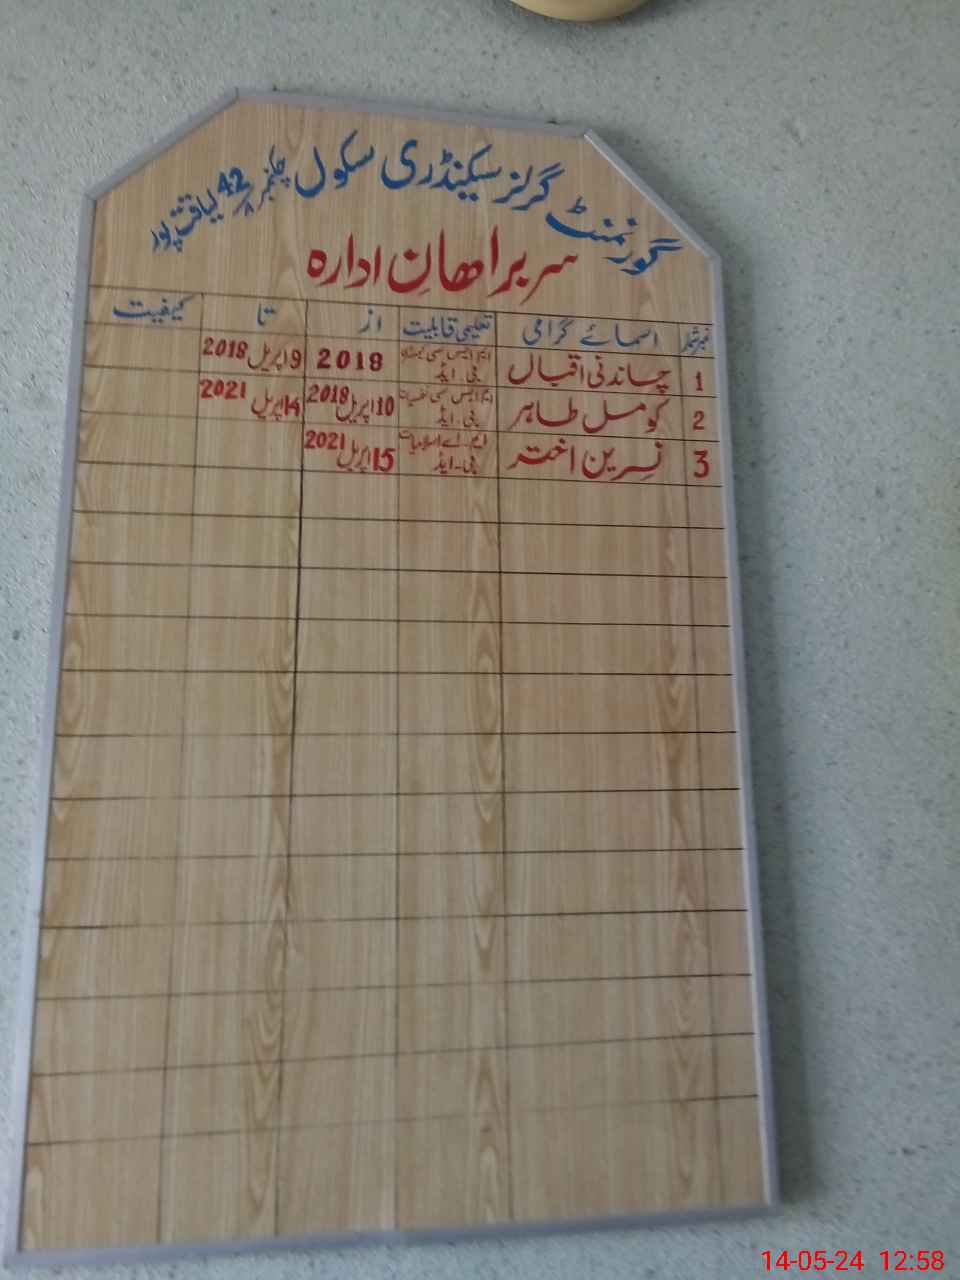 گورنمنٹ گرلز سیکنڈری سکول چکنمبر 42/A لیاقت پور
سربراھانِ ادارہ
نمبر شمار اسمائے گرامی تعلیمی قابلیت از تا کیفیت
1 چاندنی اقبال ایم ایس سی بی۔ایڈ 2018 9 اپریل 2018
2 کومل طاہر ایم ایس سی نفسیات بی۔ایڈ 10 اپریل 2018 14 اپریل 2021
3 نسرین اختر ایم۔اے اسلامیات بی۔ایڈ 15 اپریل 2021
14-05-24 12:58